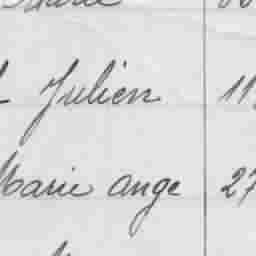 Julien 11
Marie ange 27